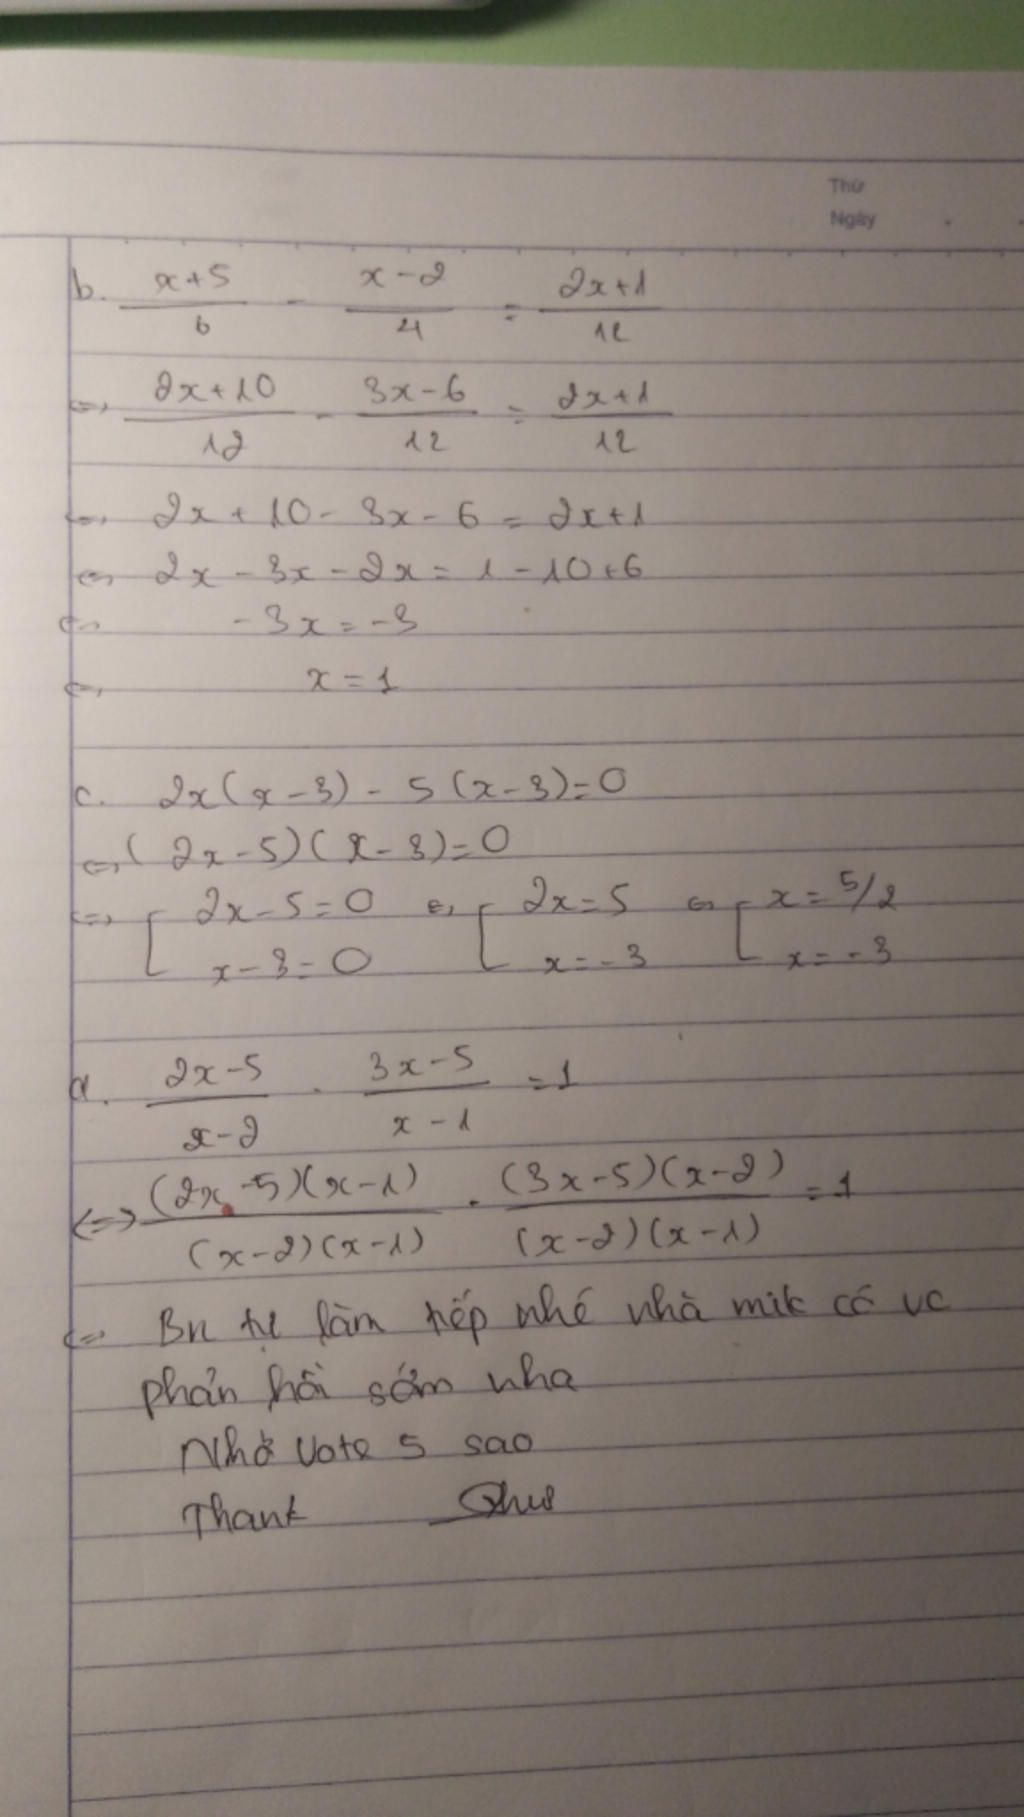 Thứ
Ngày
b. (x+5)/6 - (x-2)/4 = (2x+1)/12
<=> (2x+10)/12 - (3x-6)/12 = (2x+1)/12
<=> 2x + 10 - 3x - 6 = 2x+1
<=> 2x - 3x - 2x = 1 - 10+6
<=> -3x = -3
<=> x = 1
c. 2x(x-3) - 5(x-3)=0
<=> (2x-5)(x-3)=0
<=> [ 2x-5=0 <=> [ 2x=5 <=> [ x=5/2
x-3=0 x=-3 x=-3
d. (2x-5)/(x-2) - (3x-5)/(x-1) = 1
<=> (2x-5)(x-1)/(x-2)(x-1) - (3x-5)(x-2)/(x-2)(x-1) = 1
<=> Bn tự làm tiếp nhé nhà mik có vc
phản hồi sớm nha
Nhớ Vote 5 sao
Thank